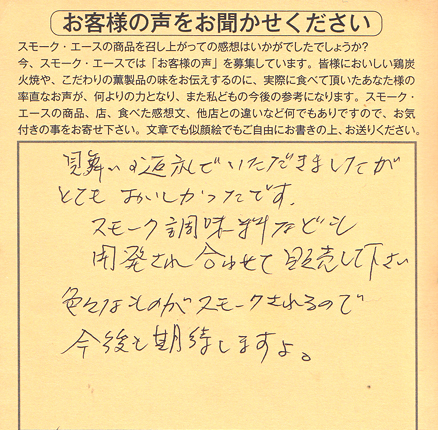 お客様の声をお聞かせください
スモーク・エースの商品を召し上がっての感想はいかがでしたでしょうか?
今、スモーク・エースでは「お客様の声」を募集しています。皆様においしい鶏炭
火焼や、こだわりの薫製品の味をお伝えするのに、実際に食べて頂いたあなた様の
率直なお声が、何よりの力となり、また私どもの今後の参考になります。スモーク・
エースの商品、店、食べた感想文、他店との違いなど何でもありですので、お気
付きの事をお寄せ下さい。文章でも似顔絵でもご自由にお書きの上、お送りください。
見舞いの返礼でいただきましたが
とても おいしかったです。
スモーク調味料なども
開発され 合わせて 販売して下さい
色々なものがスモークされるので
今後も期待しますよ。